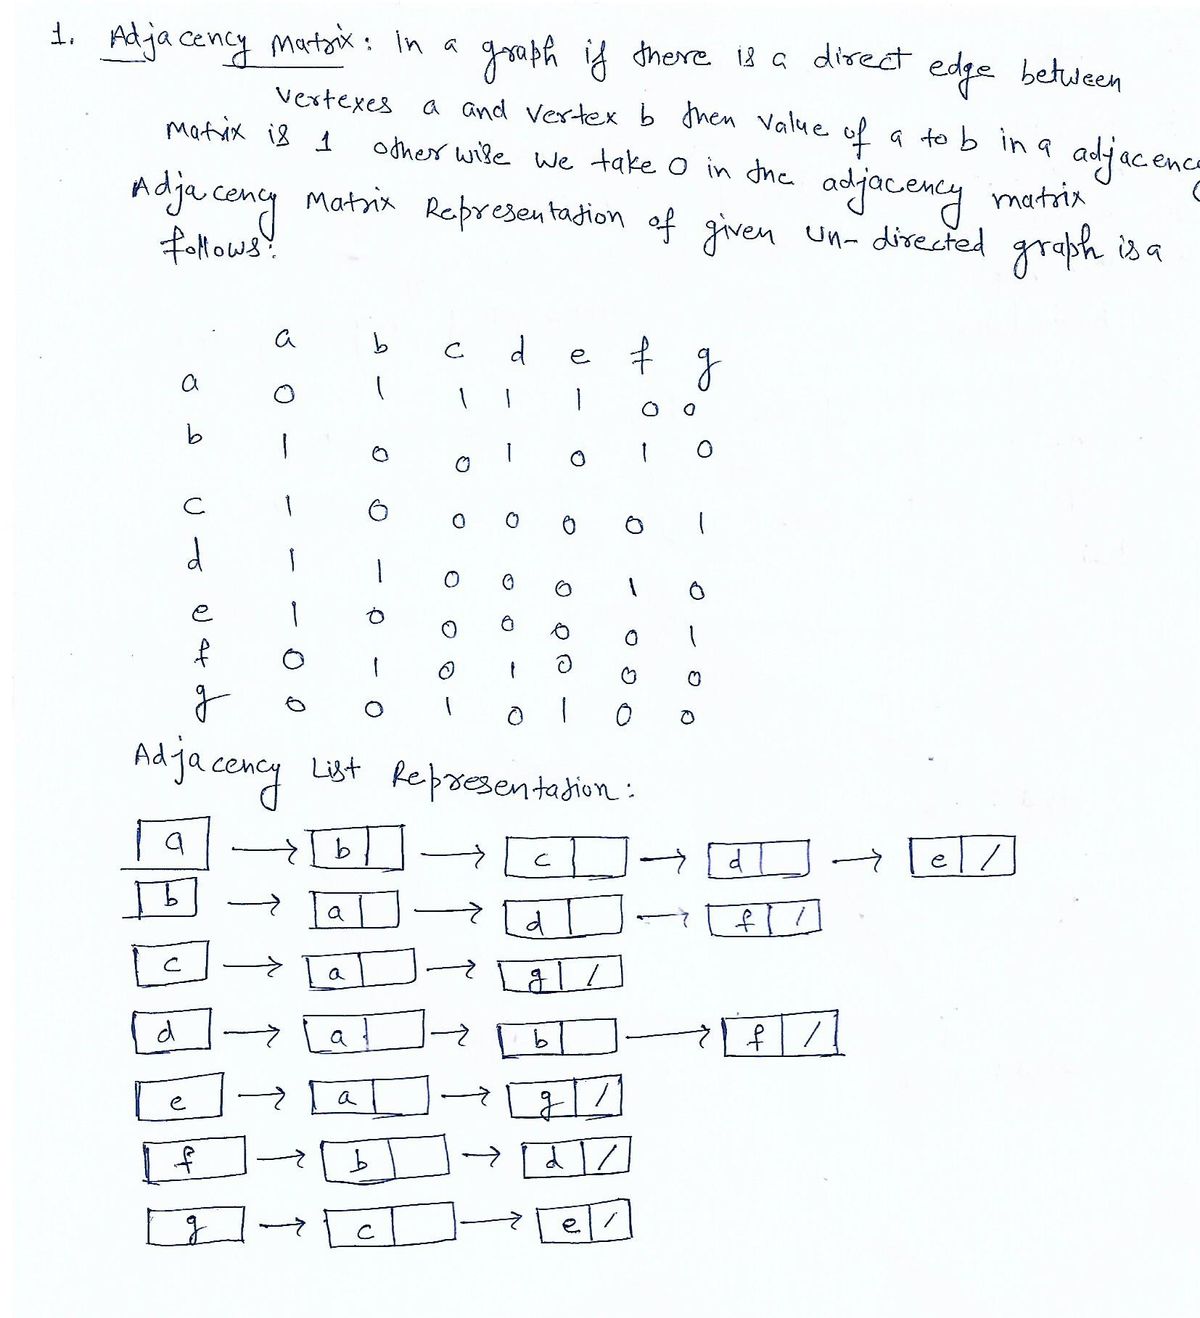 1. Adjacency Matrix: In a graph if there is a direct edge between
Vertexes a and vertex b then value of a to b in a adjacenc
Matrix is 1 otherwise we take 0 in the adjacency matrix
Adjacency Matrix Representation of given un-directed graph is a
follows:
a b c d e f g
a 0 1 1 1 1 0 0
b 1 0 0 1 0 1 0
c 1 0 0 0 0 0 1
d 1 1 0 0 0 1 0
e 1 0 0 0 0 0 1
f 0 1 0 1 0 0 0
g 0 0 1 0 1 0 0
Adjacency List Representation:
a → b → c → d → e /
b → a → d → f /
c → a → g /
d → a → b → f /
e → a → g /
f → b → d /
g → c → e /